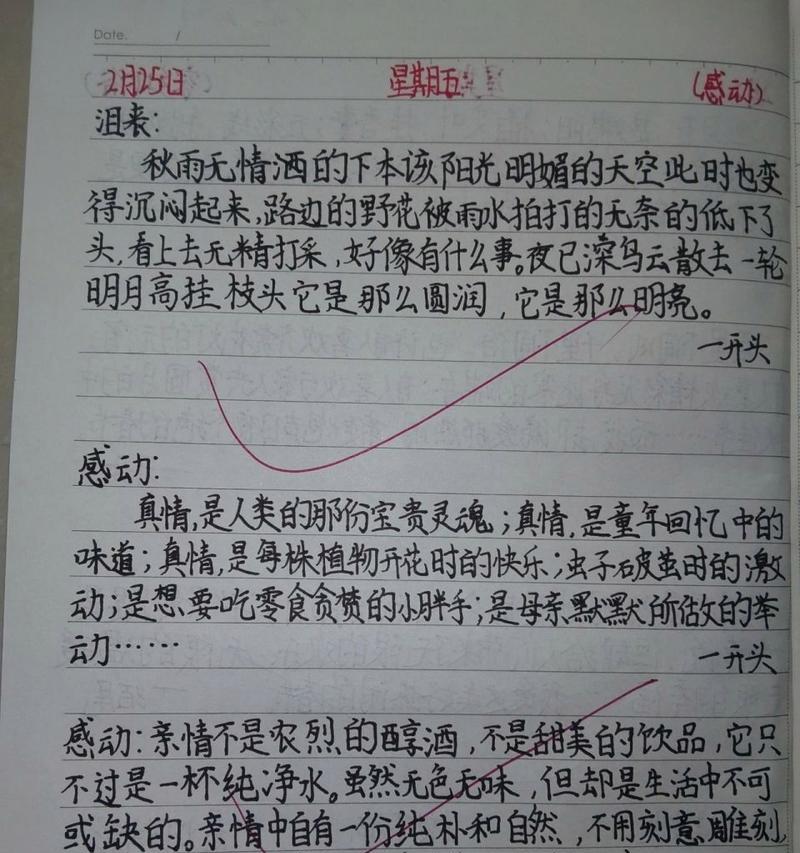 Date. /
2月25日 星期五 (感动)
沮丧:
秋雨无情洒的下本该阳光明媚的天空此时也变
得沉闷起来,路边的野花被雨水拍打的无奈的低下了
头,看上去无精打采,好像有什么事。夜已深乌云散去一轮
明月高挂枝头它是那么圆润,它是那么明亮。
一开头
感动:
真情,是人类的那份宝贵灵魂;真情,是童年回忆中的
味道;真情,是每株植物开花时的快乐;虫子破茧时的激
动;是想要吃零食贪婪的小胖手;是母亲默默所做的举
动……
一开头
感动:亲情不是浓烈的醇酒,不是甜美的饮品,它只
不过是一杯纯净水。虽然无色无味,但却是生活中不可
或缺的。亲情中自有一份纯朴和自然,不用刻意雕刻,